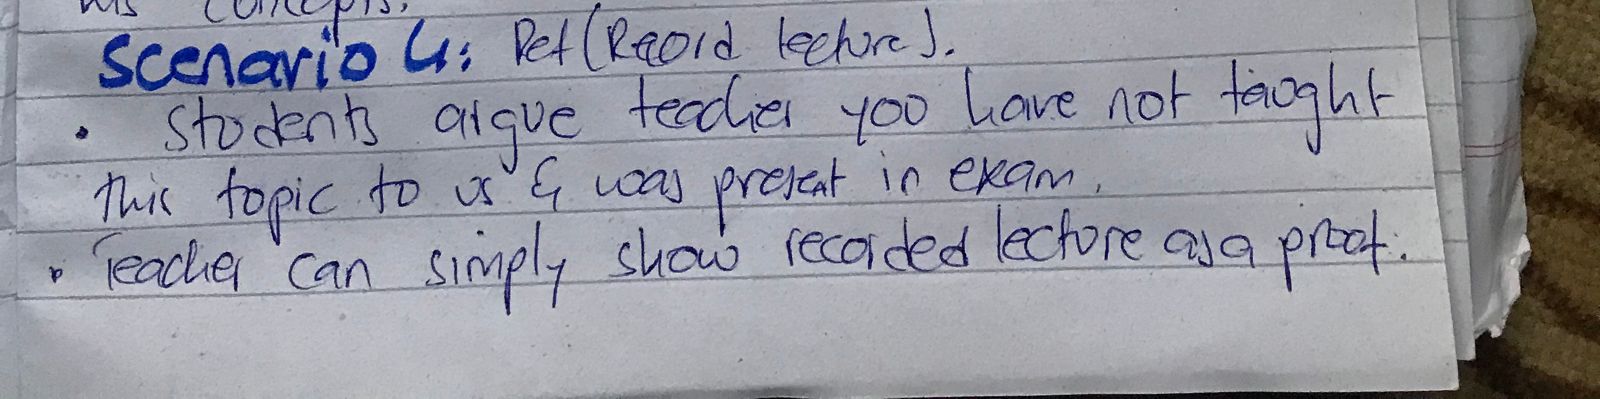 his concepts.
Scenario 4: Ref (Record lecture).
• Students argue teacher you have not taught
this topic to us & was present in exam.
• Teacher can simply show recorded lecture as a proof.